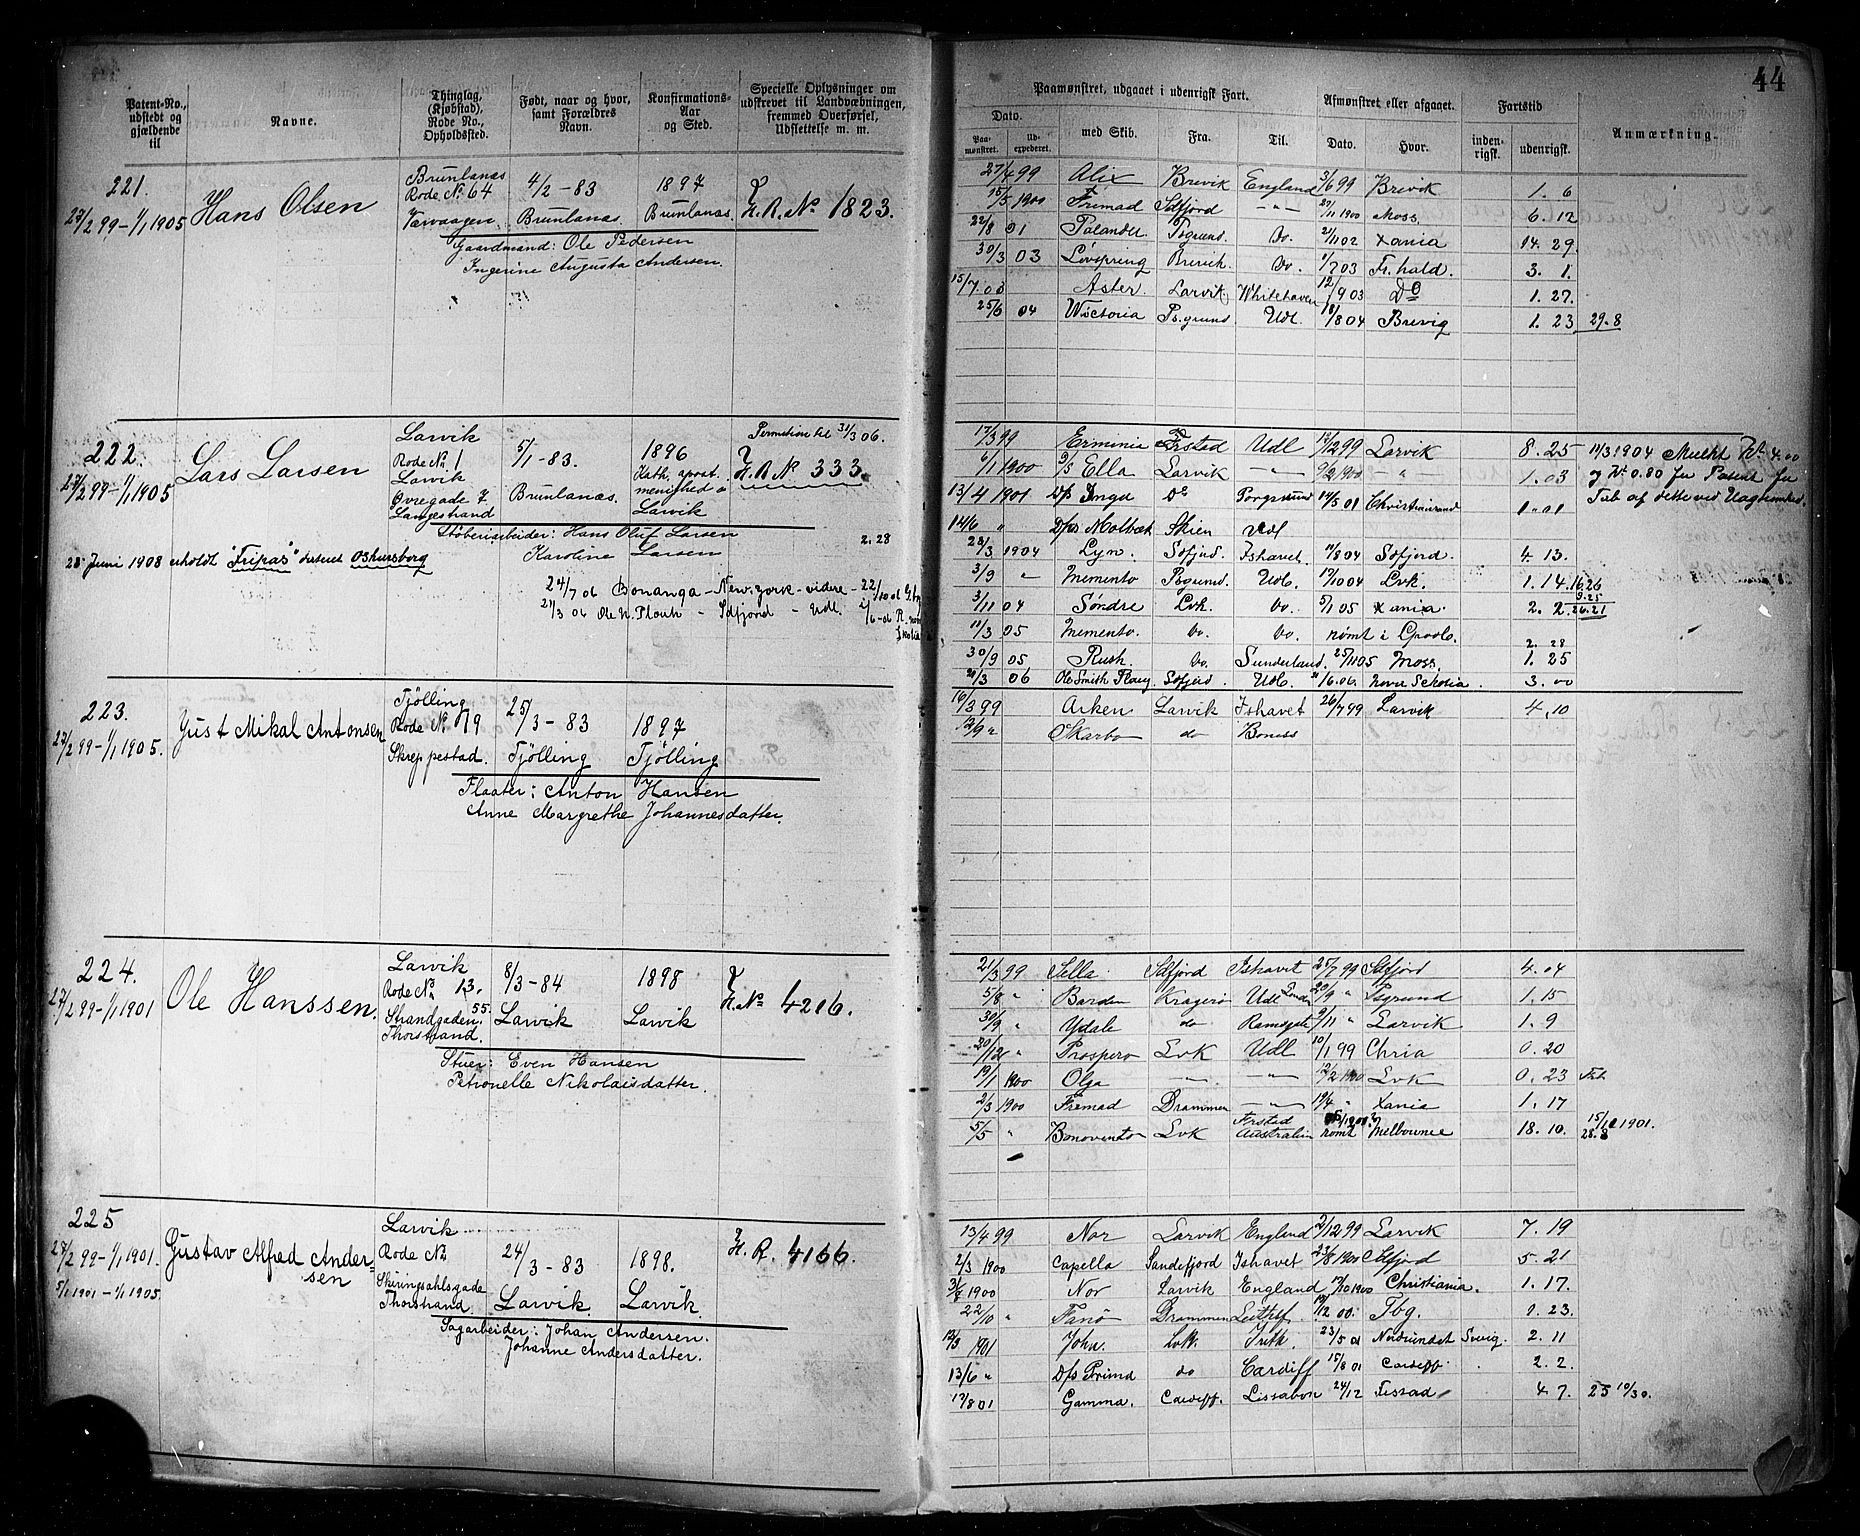 44
Patent-No., udstedt og gjældende til
Navne.
Thinglag, (Kjøbstad), Rode No., Opholdssted.
Født, naar og hvor, samt Forældres Navn.
Konfirmations- Aar og Sted.
Specielle Oplysninger om udskrevet til Landvæbningen, fremmed Overførsel, Udslettelse m. m.
Paamønstret, udgaaet i udenrigsk Fart.
Dato.
Paa- mønstret.
Ud- expederet.
med Skib.
Fra.
Til.
Afmønstret eller afgaaet.
Dato.
Hvor.
Fartstid
inden- rigsk.
udenrigsk.
Anmærkning.
221.
27/2 99 - 1/1 1905
Hans Olsen
Brunlanas
Rode No. 64
4/2 - 83
Brunlanas
1897
Brunlanas
H. R. No 1823.
Gaardmand: Ole Pedersen
Ingerine Augusta Andersen.
27/4 99 Alix Brevik England 3/6 99 Brevik 1. 6
15/5 1900 Fremad Sdfjord - " - 27/11 1900 Moss. 6. 12
22/8 01 Palander Psgrund. Do. 2/11 02 Xania 14. 29.
30/3 03 Løvspring Brevik. Do. 1/7 03 Fr. hald. 3. 1.
15/7 03 Aster. Larvik Whitehaven 12/9 03 Do 1. 27.
25/6 04 Wictoria Ps.grund. Udl. 18/8 04 Brevig 1. 23 29-8
222.
27/2 99 - 1/1 1905
Lars Larsen
Larvik
Rode No. 1
Larvik
Øvregade 7
Langestrand
5/1 - 83.
Brunlanas.
1896
Kath. apost. menighed i
Larvik
Permition til 31/3 06.
H. R No 333.
Støberiarbeider: Hans Oluf Larsen
Karoline Larsen
2. 28
28 Juni 1908 erholdt "Fripas"
24/7 06 Bonanga - New. York - videre - 22/10 06
21/3 06 Ole S. Plouh - Sdfjord - Udl.
17/3 99 Erminia Frstad Udl 17/12 99 Larvik 8. 25
6/1 1900 S/S Ella Larvik - " - 9/2 1900 - " 1. 03
13/4 1901 D/s Inga Do Porgrund 14/5 01 Christiansand 1. 01
14/6 " D/s Molbæk Skien Udl
28/3 1904 Lyn. Sdfjord. Ishavet. 11/8 04 Sdfjord. 4. 13.
3/9 " Memento Psgrund. Udl. 17/10 04 Lvk. 1. 14. 16 26
3/11 04 Søndre Lvk. Do. 5/1 05 Xania. 2. 2. 26.21
11/3 05 Memento. Do. Do. rømt i 2. 28
30/9 05 Rush. Do. Sunderland. 25/11 05 Moss. 1. 25
21/3 06 Ole Smith Ploug Sdfjord. Udl. 16.06. Nova Skotia. 3. 00
11/3 1904 Mulkt Kr 4.00
223.
27/2 99 - 1/1 1905.
Just Mikal Antonsen
Tjølling
Rode No. 79
Skreppestad.
25/3 - 83
Tjølling
1897
Tjølling
Flaater: Anton Hansen
Anne Margrethe Johannesdatter.
16/3 99 Arken Larvik Ishavet 26/7 99 Larvik 4. 10
12/9 " Skarbo do Boness
224.
27/2 99 - 1/1 1901
Ole Hanssen.
Larvik
Rode No. 13.
Strandgaden. 55
Thorstrand.
8/3 - 84
Larvik
1898
Larvik
H. No 4216.
Stuer: Even Hansen
Petronelle Nikolaisdatter.
21/3 99 Sella Sdfjord Ishavet 25/7 99 Sdfjord 4. 04
5/8 " Barden Kragerø Udl 20/9 " Psgrund 1. 15
30/9 " Ydale do Ramsgate 9/11 " Larvik 1. 9
20/12 " Prospero Lvk Udl 10/1 99 Chria 0. 20
19/1 1900 Olga - " - - " - 12/2 1900 Lvk 0. 23
2/3 1900 Fremad Drammen - " - 19/4 " Xania 1. 17
5/5 " Bonoventa Lvk Frstad Australien rømt Melbourne 18. 10. 15/1 1901.
28. 8
225
27/2 99 - 1/1 1901.
5/1 1901 - 1/1 1905
Gustav Alfred Andersen
Larvik
Rode No.
Skiringsahlsgade
Thorstrand
24/3 - 83
Larvik.
1898.
Larvik
H. R. 4166.
Sagarbeider: Johan Andersen.
Johanne Andersdatter.
13/4 99 Nor Larvik England 2/12 99 Larvik 7. 19
2/3 1900 Capella Sandefjord Ishavet 23/8 1900 Sdfjord 5. 21
3/9 1900 Nor Larvik England 17/10 1900 Christiania. 1. 17.
22/10 " Fanø Drammen Leith 12/12 00. Tbg. 1. 23.
12/3 1901 John. Lvk. Frith. 23/5 01 2. 11
13/6 " D/s Primd do Cardiff 15/8 01 Cardiff. 2. 2.
17/8 01 Gamma. Cardiff. Lissabon 24/12 4. 7. 25 10/30.